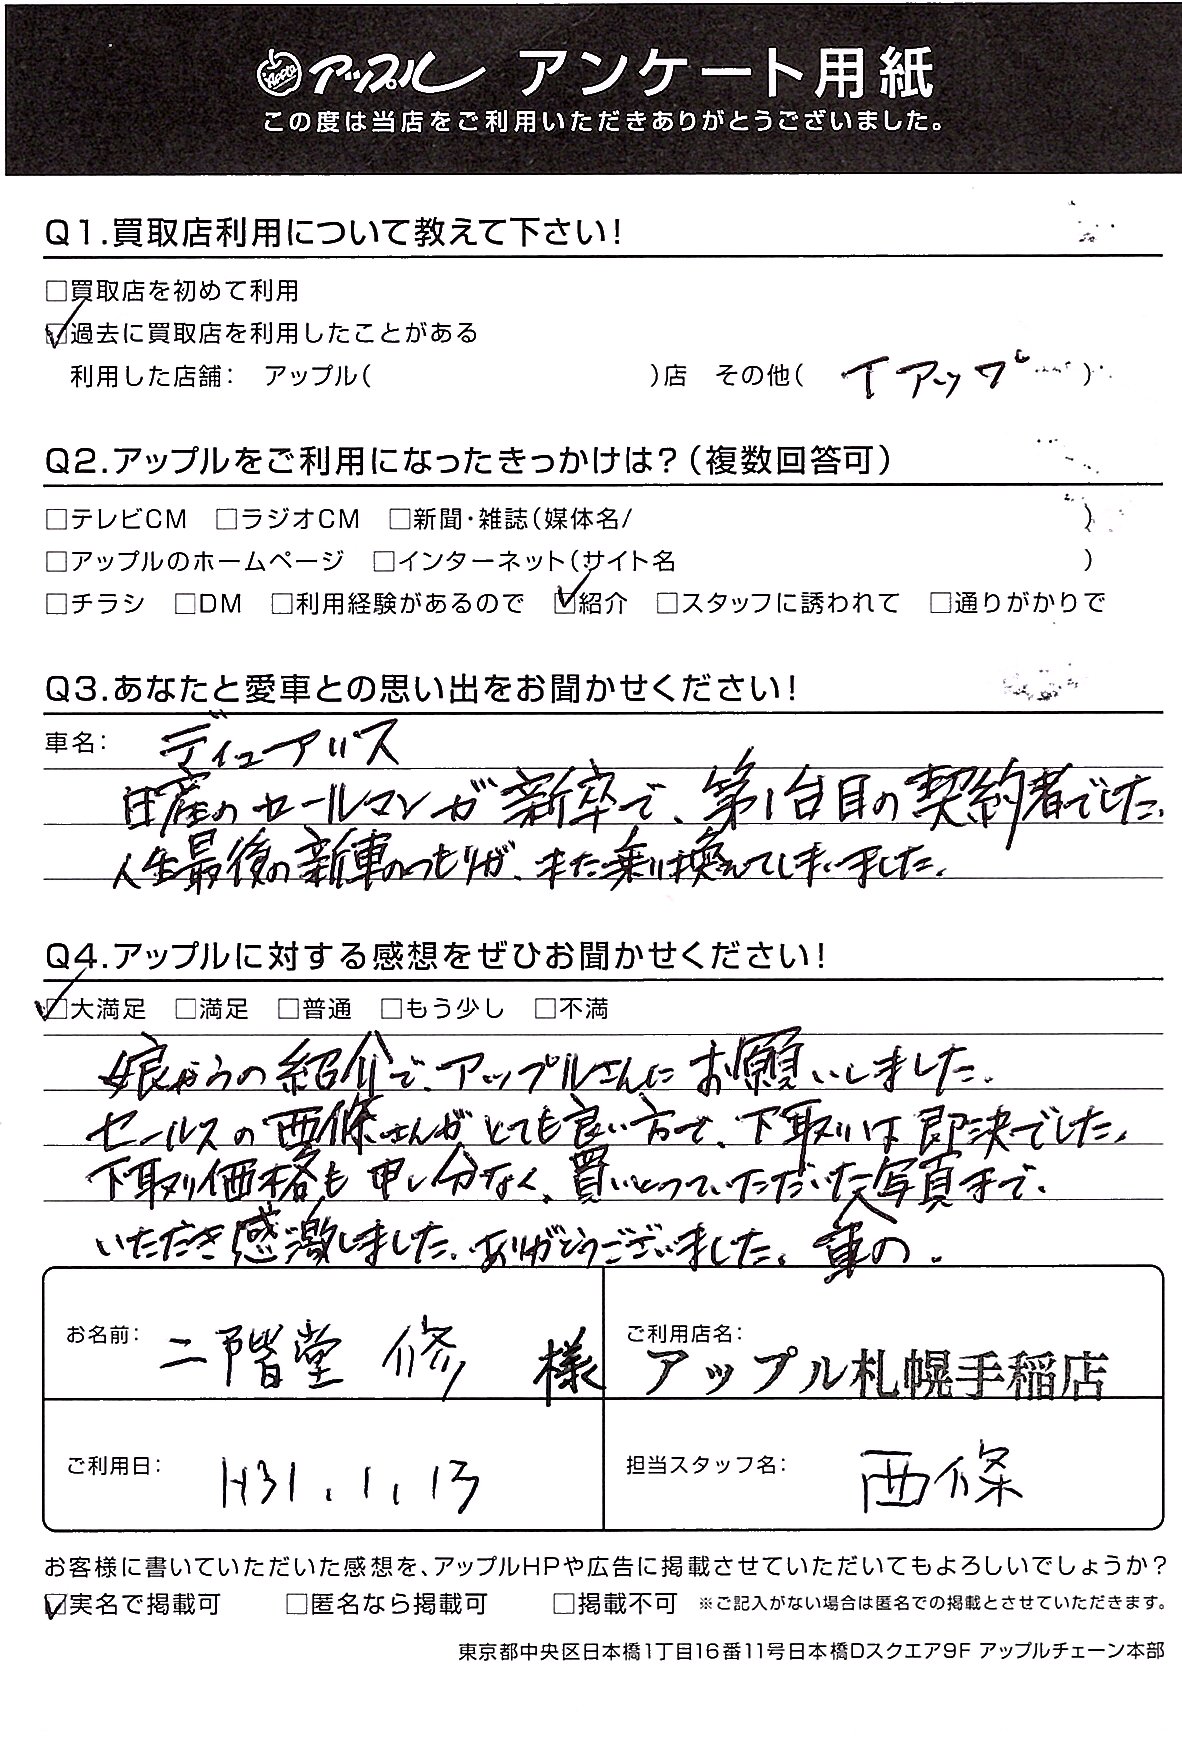 Apple アップル アンケート用紙
この度は当店をご利用いただきありがとうございました。
Q1.買取店利用について教えて下さい!
□買取店を初めて利用
☑過去に買取店を利用したことがある
利用した店舗: アップル( )店 その他( )
Q2.アップルをご利用になったきっかけは?(複数回答可)
□テレビCM □ラジオCM □新聞・雑誌(媒体名/ )
□アップルのホームページ □インターネット(サイト名 )
□チラシ □DM □利用経験があるので ☑紹介 □スタッフに誘われて □通りがかりで
Q3.あなたと愛車との思い出をお聞かせください!
車名: デュアリス
日産のセールスマンが新卒で、第1台目の契約者でした。
人生最後の新車のつもりが、また乗り換えてしまいました。
Q4.アップルに対する感想をぜひお聞かせください!
☑大満足 □満足 □普通 □もう少し □不満
娘からの紹介で、アップルさんにお願いしました。
セールスの西條さんがとても良い方で、下取りは即決でした。
下取り価格も申し分なく、買いとっていただいた写真まで、
いただき感激しました。ありがとうございました。車の
お名前: 二階堂 修 様
ご利用店名: アップル札幌手稲店
ご利用日: H31.1.13
担当スタッフ名: 西條
お客様に書いていただいた感想を、アップルHPや広告に掲載させていただいてもよろしいでしょうか?
☑実名で掲載可 □匿名なら掲載可 □掲載不可 ※ご記入がない場合は匿名での掲載とさせていただきます。
東京都中央区日本橋1丁目16番11号日本橋Dスクエア9F アップルチェーン本部